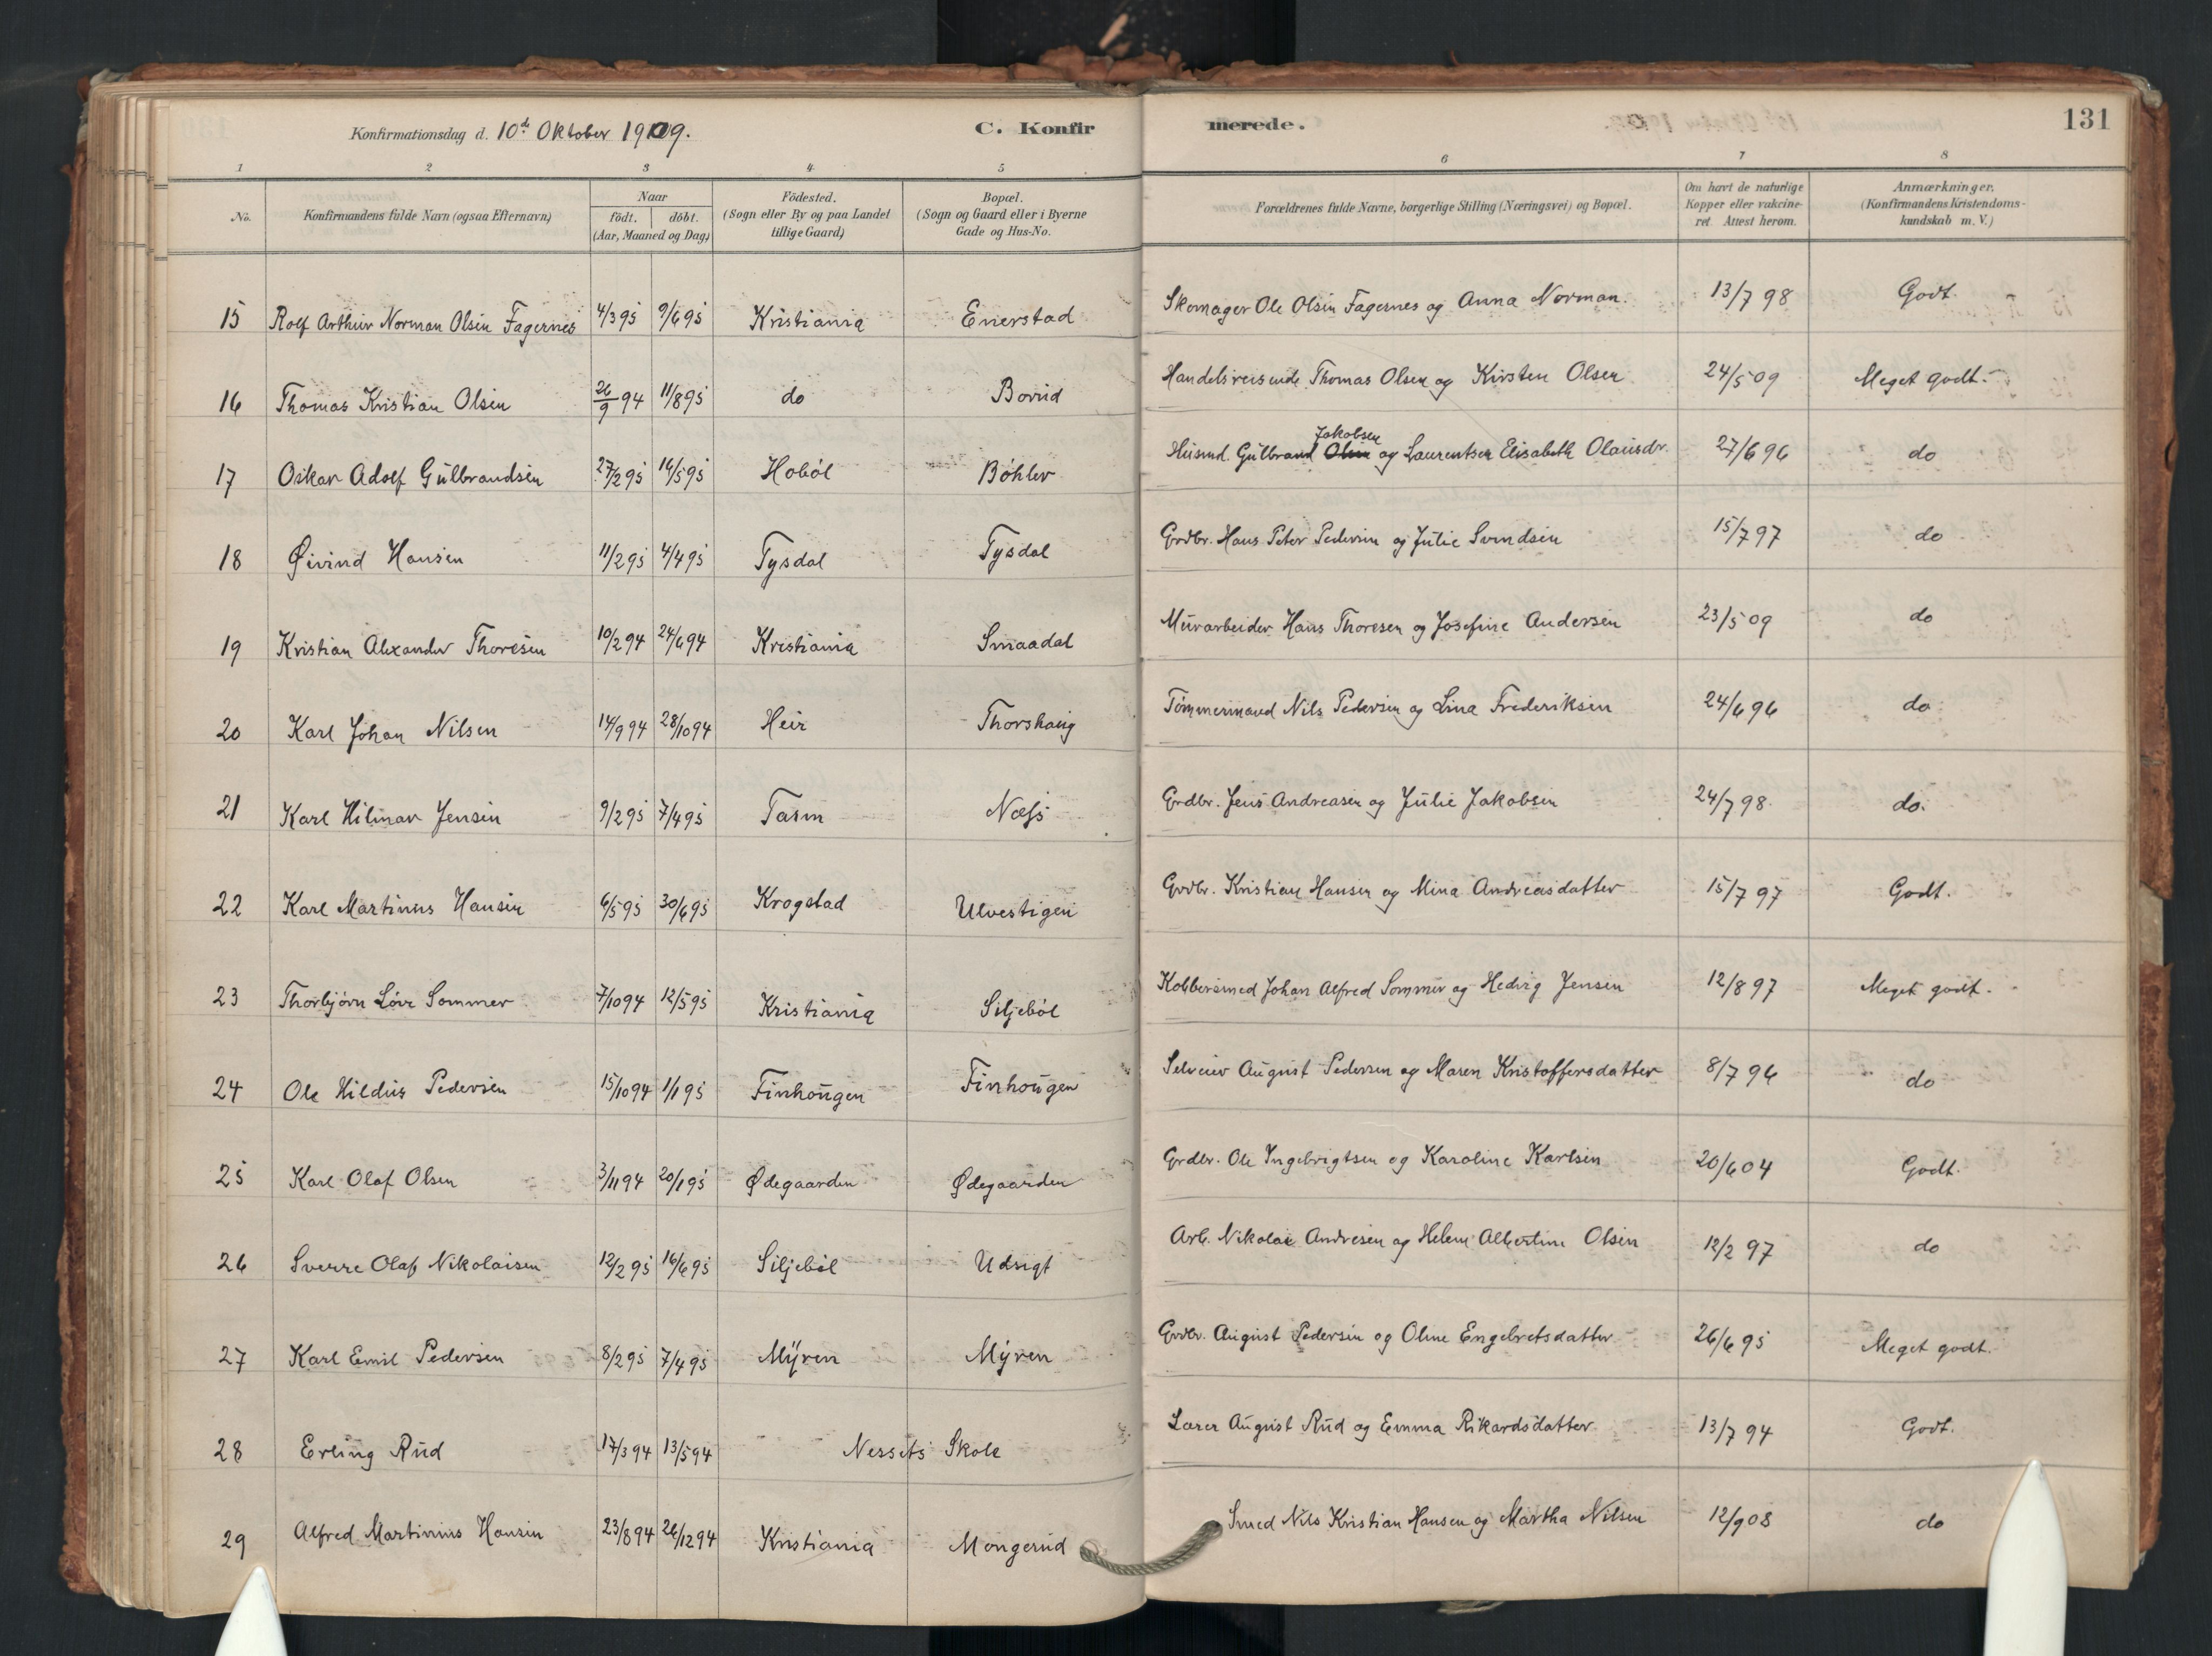 Konfirmationsdag d. 10de Oktober 1909. C. Konfirmerede. 131
1 2 3 4 5 6 7 8
No. Konfirmandens fulde Navn (ogsaa Efternavn) Naar födt. döbt. (Aar, Maaned og Dag) Födested. (Sogn eller By og paa Landet tillige Gaard) Bopæl. (Sogn og Gaard eller i Byerne Gade og Hus-No. Forældrenes fulde Navne, borgerlige Stilling (Næringsvei) og Bopæl. Om havt de naturlige Kopper eller vakcineret. Attest herom. Anmærkninger. (Konfirmandens Kristendomskundskab m. V.)
15 Rolf Arthur Norman Olsen Fagernes 4/3 95 9/6 95 Kristiania Enerstad Skomager Ole Olsen Fagernes og Anna Norman. 13/7 98 Godt.
16 Thomas Kristian Olsen 26/9 94 11/8 95 do Bovud Handelsreisende Thomas Olsen og Kirsten Olsen 24/5 09 Meget godt.
17 Oskar Adolf Gulbrandsen 27/2 95 16/5 95 Hoböl Böhler Husmd. Gulbrand Olsen Jakobsen og Laurentsen Elisabeth Olausdr. 27/6 96 do
18 Øivind Hansen 11/2 95 4/4 95 Tysdal Tysdal Grdbr. Hans Peter Pedersen og Julie Svendsen 15/7 97 do
19 Kristian Alexander Thoresen 10/2 94 24/6 94 Kristiania Smaadal Murarbeider Hans Thoresen og Josefine Andersen 23/5 09 do
20 Karl Johan Nilsen 14/9 94 28/10 94 Heir Thorshaug Tömmermand Nils Pedersen og Lina Frederiksen 24/6 96 do
21 Karl Hilmar Jensen 9/2 95 7/4 95 Tasm Næss Grdbr. Jens Andreasen og Julie Jakobsen 24/7 98 do.
22 Karl Martinus Hansen 6/5 95 30/6 95 Krogstad Ulvestigen Grdbr. Kristian Hansen og Mina Andreasdatter 15/7 97 Godt.
23 Thorbjörn Löve Sommer 7/10 94 12/5 95 Kristiania Siljeböl Kobbersmed Johan Alfred Sommer og Hedvig Jensen 12/8 97 Meget godt.
24 Ole Hildus Pedersen 15/10 94 1/1 95 Finhougen Finhougen Selveier August Pedersen og Maren Kristoffersdatter 8/7 96 do
25 Karl Olaf Olsen 3/11 94 20/1 95 Ødegaarden Ødegaarden Grdbr. Ole Ingebrigtsen og Karoline Karlsen 20/6 04 Godt.
26 Sverre Olaf Nikolaisen 12/2 95 16/6 95 Siljeböl Udsigt Arb. Nikolai Andresen og Helene Albertine Olsen 12/2 97 do
27 Karl Emil Pedersen 8/2 95 7/4 95 Myren Myren Grdbr. August Pedersen og Oline Engebretsdatter 26/6 95 Meget godt.
28 Erling Rud 17/3 94 13/5 94 Nessets Skole Lærer August Rud og Emma Rikardsdatter 13/7 94 Godt.
29 Alfred Martinius Hansen 23/8 94 26/12 94 Kristiania Mongerud Smed Nils Kristian Hansen og Martha Nilsen 12/9 08 do